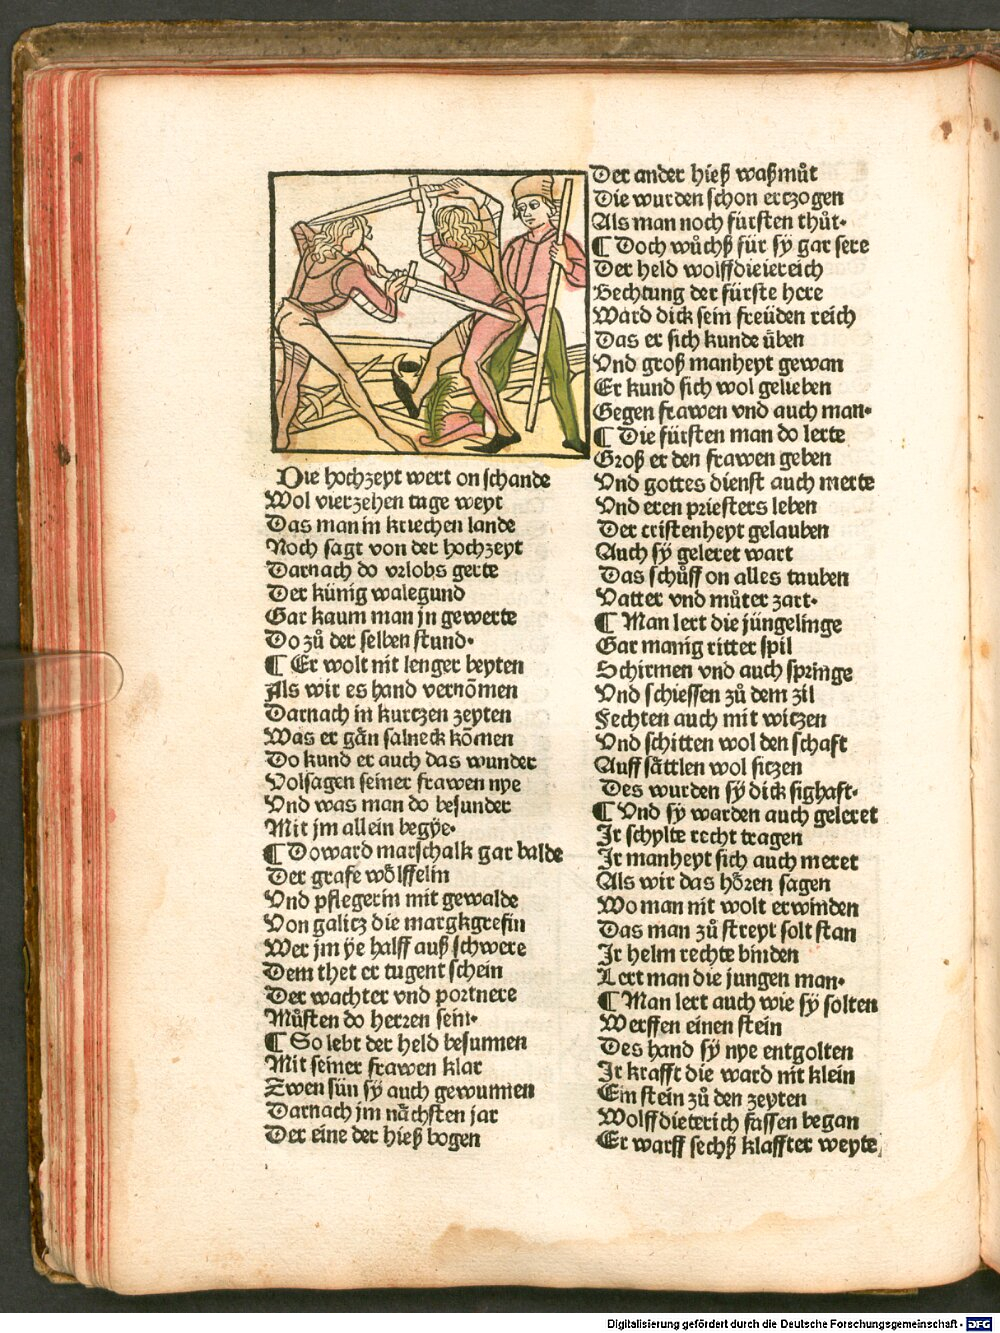 Die hochzeyt wert on schande
Wol vierzehen tage weyt
Das man in kriechen lande
Noch sagt von der hochzeyt
Darnach do vrlobs gerte
Der künig walegund
Gar kaum man jn gewerte
Do zů der selben stund·
¶ Er wolt nit lenger beyten
Als wir es hand vernōmen
Darnach in kurtzen zeyten
Was er gān salneck kōmen
Do kund er auch das wunder
Volsagen seiner frawen nye
Vnd was man do besunder
Mit jm allein begÿe·
¶ Do ward marschalk gar balde
Der grafe wölffelin
Vnd pflegerin mit gewalde
Von galitz die margkgrefin
Wer jm ÿe halff auß schwere
Dem thet er tugent schein
Der wachter vnd portnere
Můsten do herren sein·
¶ So lebt der held besunnen
Mit seiner frawen klar
Zwen sün sÿ auch gewunnen
Darnach jm nächsten jar
Der eine der hieß bogen
Der ander hieß waßmůt
Die wurden schon ertzogen
Als man noch fürsten thůt·
¶ Doch wůchß für sÿ gar sere
Der held wolffdieiereich
Bechtung der fürste here
Ward dick sein freüden reich
Das er sich kunde üben
Vnd groß manheyt gewan
Er kund sich wol gelieben
Gegen frawen vnd auch man·
¶ Die fürsten man do lerte
Groß er den frawen geben
Vnd gottes dienst auch merte
Vnd eren priesters leben
Der cristenheyt gelauben
Auch sÿ geleret wart
Das schůff on alles tauben
Vatter vnd můter zart·
¶ Man lert die jüngelinge
Gar manig ritter spil
Schirmen vnd auch springe
Vnd schiessen zů dem zil
Fechten auch mit witzen
Vnd schitten wol den schaft
Auff sättlen wol sitzen
Des wurden sÿ dick sighaft·
¶ Vnd sÿ warden auch geleret
Jr schylte recht tragen
Jr manheyt sich auch meret
Als wir das hören sagen
Wo man nit wolt erwinden
Das man zů streyt solt stan
Jr helm rechte binden
Lert man die jungen man·
¶ Man lert auch wie sÿ solten
Werffen einen stein
Des hand sÿ nye entgolten
Jr krafft die ward nit klein
Ein stein zů den zeyten
Wolffdieterich fassen began
Er warff sechß klaffter weyte
Digitalisierung gefördert durch die Deutsche Forschungsgemeinschaft - DFG